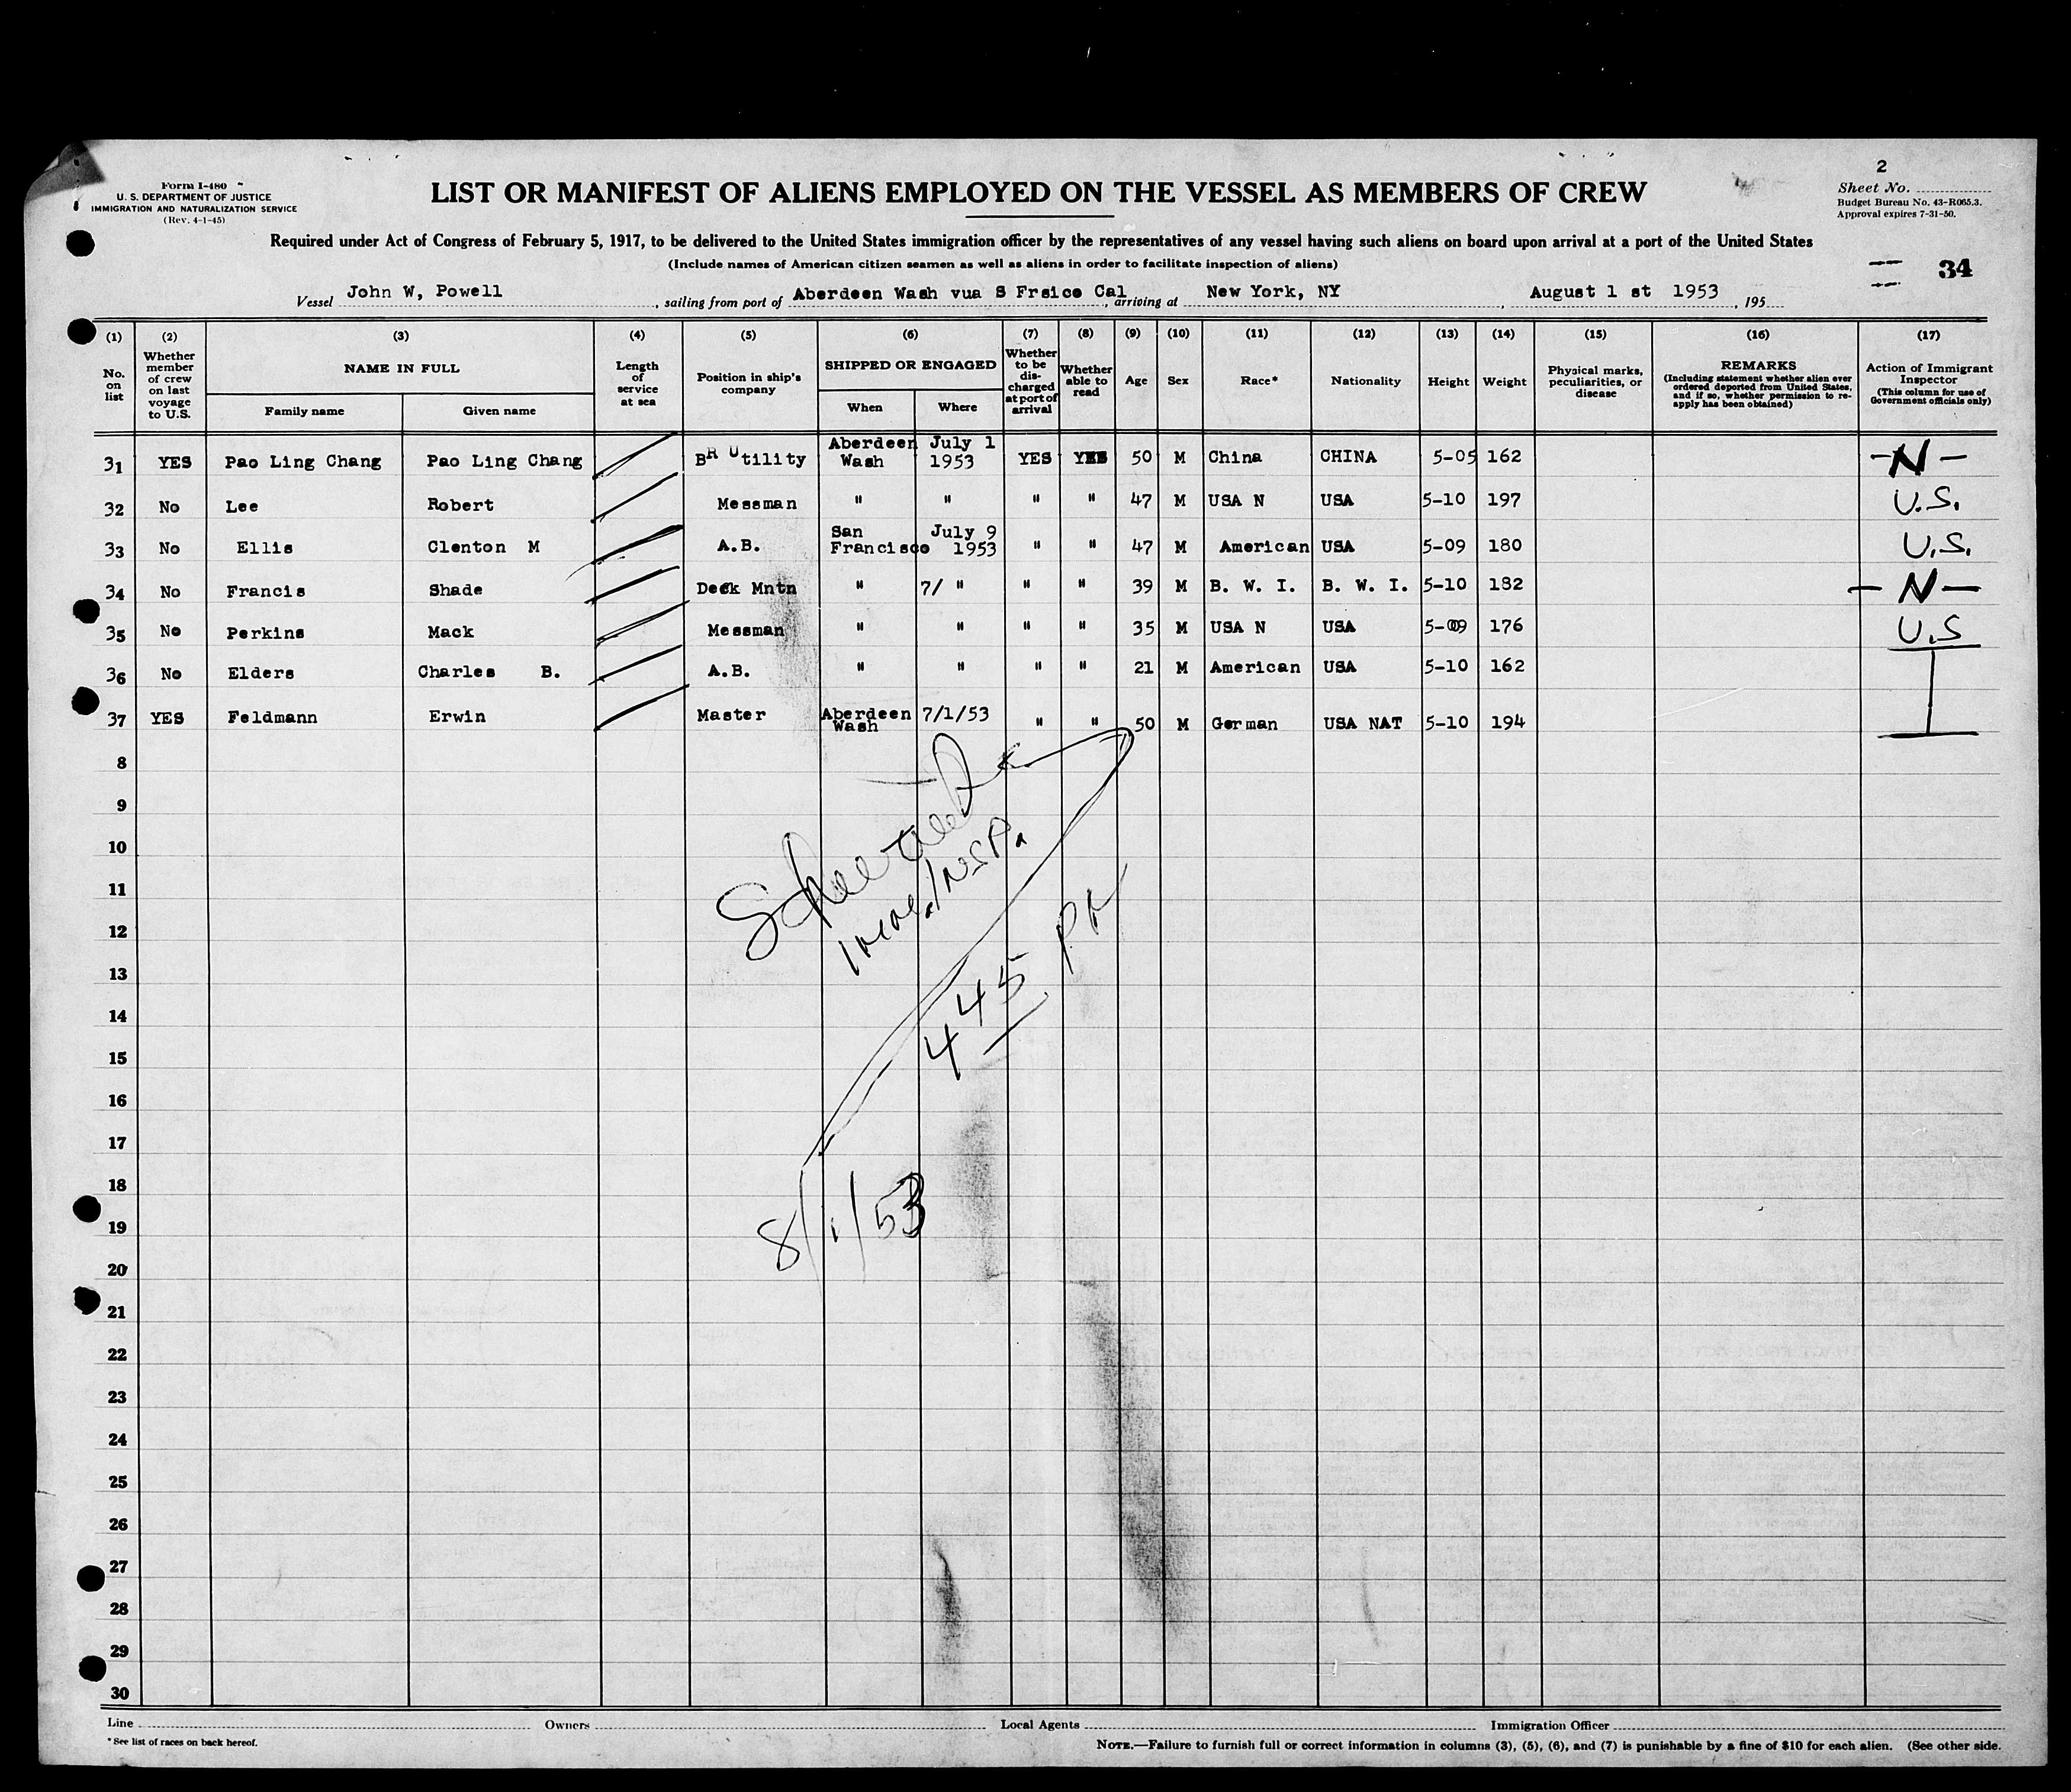 Form I-480
U. S. DEPARTMENT OF JUSTICE
IMMIGRATION AND NATURALIZATION SERVICE
(Rev. 4-1-45)
LIST OR MANIFEST OF ALIENS EMPLOYED ON THE VESSEL AS MEMBERS OF CREW
2
Sheet No.
Budget Bureau No. 43-R065.3.
Approval expires 7-31-50.
Required under Act of Congress of February 5, 1917, to be delivered to the United States immigration officer by the representatives of any vessel having such aliens on board upon arrival at a port of the United States
(Include names of American citizen seamen as well as aliens in order to facilitate inspection of aliens)
34
Vessel John W, Powell, sailing from port of Aberdeen Wash vua S Frsico Cal, arriving at New York, NY, August 1 st 1953, 195
(1) (2) (3) (4) (5) (6) (7) (8) (9) (10) (11) (12) (13) (14) (15) (16) (17)
No. on list
Whether member of crew on last voyage to U.S.
NAME IN FULL
Family name Given name
Length of service at sea
Position in ship's company
SHIPPED OR ENGAGED
When Where
Whether to be discharged at port of arrival
Whether able to read
Age
Sex
Race*
Nationality
Height
Weight
Physical marks, peculiarities, or disease
REMARKS
(Including statement whether alien ever ordered deported from United States, and if so, whether permission to reapply has been obtained)
Action of Immigrant Inspector
(This column for use of Government officials only)
31 YES Pao Ling Chang Pao Ling Chang BR Utility Aberdeen Wash July 1 1953 YES YES 50 M China CHINA 5-05 162 -N-
32 No Lee Robert Messman " " " " 47 M USA N USA 5-10 197 U.S.
33 No Ellis Clenton M A.B. San Francisco July 9 1953 " " 47 M American USA 5-09 180 U.S.
34 No Francis Shade Deck Mntn " 7/ " " " 39 M B. W. I. B. W. I. 5-10 182 -N-
35 No Perkins Mack Messman " " " " 35 M USA N USA 5-09 176 U.S
36 No Elders Charles B. A.B. " " " " 21 M American USA 5-10 162
37 YES Feldmann Erwin Master Aberdeen Wash 7/1/53 " " 50 M German USA NAT 5-10 194
8
9
10
11
12
13
14
15
16
17
18
19
20
21
22
23
24
25
26
27
28
29
30
445 PM
8/1/53
Line Owners Local Agents Immigration Officer
*See list of races on back hereof.
NOTE.—Failure to furnish full or correct information in columns (3), (5), (6), and (7) is punishable by a fine of $10 for each alien. (See other side.